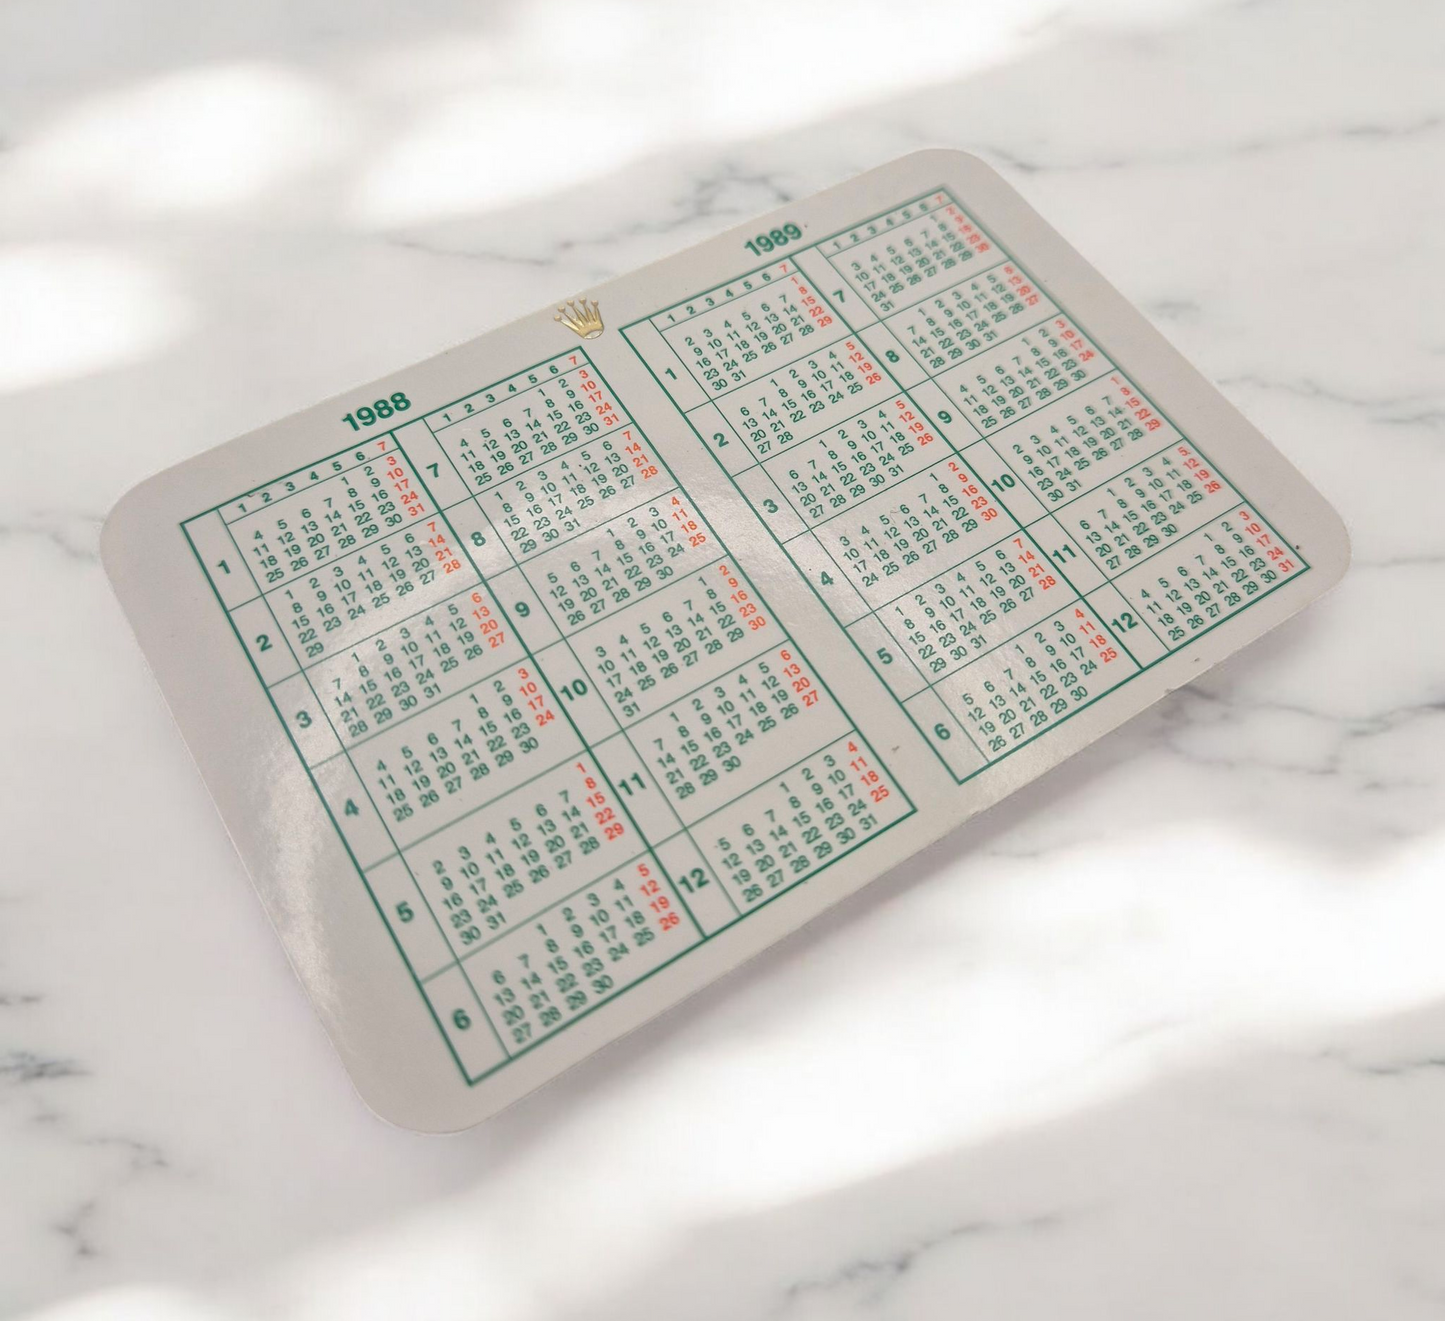 1988
1 2 3 4 5 6 7
1
1 2 3
4 5 6 7 8 9 10
11 12 13 14 15 16 17
18 19 20 21 22 23 24
25 26 27 28 29 30 31
2
1 2 3 4 5 6 7
8 9 10 11 12 13 14
15 16 17 18 19 20 21
22 23 24 25 26 27 28
29
3
1 2 3 4 5 6
7 8 9 10 11 12 13
14 15 16 17 18 19 20
21 22 23 24 25 26 27
28 29 30 31
4
1 2 3
4 5 6 7 8 9 10
11 12 13 14 15 16 17
18 19 20 21 22 23 24
25 26 27 28 29 30
5
1
2 3 4 5 6 7 8
9 10 11 12 13 14 15
16 17 18 19 20 21 22
23 24 25 26 27 28 29
30 31
6
1 2 3 4 5
6 7 8 9 10 11 12
13 14 15 16 17 18 19
20 21 22 23 24 25 26
27 28 29 30
1 2 3 4 5 6 7
7
1 2 3
4 5 6 7 8 9 10
11 12 13 14 15 16 17
18 19 20 21 22 23 24
25 26 27 28 29 30 31
8
1 2 3 4 5 6 7
8 9 10 11 12 13 14
15 16 17 18 19 20 21
22 23 24 25 26 27 28
29 30 31
9
1 2 3 4
5 6 7 8 9 10 11
12 13 14 15 16 17 18
19 20 21 22 23 24 25
26 27 28 29 30
10
1 2
3 4 5 6 7 8 9
10 11 12 13 14 15 16
17 18 19 20 21 22 23
24 25 26 27 28 29 30
31
11
1 2 3 4 5 6
7 8 9 10 11 12 13
14 15 16 17 18 19 20
21 22 23 24 25 26 27
28 29 30
12
1 2 3 4
5 6 7 8 9 10 11
12 13 14 15 16 17 18
19 20 21 22 23 24 25
26 27 28 29 30 31
1989
1 2 3 4 5 6 7
1
1
2 3 4 5 6 7 8
9 10 11 12 13 14 15
16 17 18 19 20 21 22
23 24 25 26 27 28 29
30 31
2
1 2 3 4 5
6 7 8 9 10 11 12
13 14 15 16 17 18 19
20 21 22 23 24 25 26
27 28
3
1 2 3 4 5
6 7 8 9 10 11 12
13 14 15 16 17 18 19
20 21 22 23 24 25 26
27 28 29 30 31
4
1 2
3 4 5 6 7 8 9
10 11 12 13 14 15 16
17 18 19 20 21 22 23
24 25 26 27 28 29 30
5
1 2 3 4 5 6 7
8 9 10 11 12 13 14
15 16 17 18 19 20 21
22 23 24 25 26 27 28
29 30 31
6
1 2 3 4
5 6 7 8 9 10 11
12 13 14 15 16 17 18
19 20 21 22 23 24 25
26 27 28 29 30
1 2 3 4 5 6 7
7
1 2
3 4 5 6 7 8 9
10 11 12 13 14 15 16
17 18 19 20 21 22 23
24 25 26 27 28 29 30
31
8
1 2 3 4 5 6
7 8 9 10 11 12 13
14 15 16 17 18 19 20
21 22 23 24 25 26 27
28 29 30 31
9
1 2 3
4 5 6 7 8 9 10
11 12 13 14 15 16 17
18 19 20 21 22 23 24
25 26 27 28 29 30
10
1
2 3 4 5 6 7 8
9 10 11 12 13 14 15
16 17 18 19 20 21 22
23 24 25 26 27 28 29
30 31
11
1 2 3 4 5
6 7 8 9 10 11 12
13 14 15 16 17 18 19
20 21 22 23 24 25 26
27 28 29 30
12
1 2 3
4 5 6 7 8 9 10
11 12 13 14 15 16 17
18 19 20 21 22 23 24
25 26 27 28 29 30 31